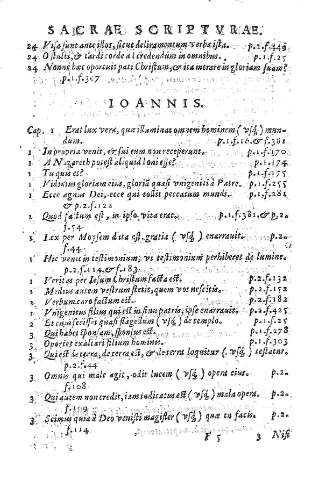 SACRAE SCRIPTVRAE.
24 Visa sunt ante illos, sicut deliramentum verba ista. p.2.f.449
24 O stulti, & tardi corde ad credendum in omnibus. p.1.f.25
24 Nonne hæc oportuit pati Christum, & ita intrare in gloriam suam?
p.1.f.307
IOANNIS.
Cap. 1 Erat lux vera, quæ illuminat omnem hominem (vsq;) mun-
dum. p.1.f.16.& f.381
1 In propria venit, & sui eum non receperunt. p.1.f.170
1 A Nazareth potest aliquid boni esse? p.1.f.174
1 Tu quis es? p.1.f.175
1 Vidimus gloriam eius, gloriã quasi vnigeniti à Patre. p.1.f.255
1 Ecce agnus Dei, ecce qui tollit peccatum mundi. p.1.f.281
& p.2.f.122
1 Quod factum est, in ipso vita erat. p.1.f.381,& p.2.
f.54
1 Lex per Moysem data est, gratia (vsq;) enarrauit. p.2.
f.44
1 Hic venit in testimonium, vt testimonium perhiberet de lumine.
p.2.f.114,& f.183.
1 Veritas per Iesum Christum facta est. p.2.f.132
1 Medius autem vestrum stetit, quem vos nescitis. p.2.f.152
1 Verbum caro factum est. p.2.f.182
1 Vnigenitus filius qui est in sinu patris, ipse enarrauit. p.2.f.425
2 Et cum fecisset quasi flagellum (vsq;) de templo. p.1.f.25
3 Qui habet sponsam, sponsus est. p.1.f.278
3 Oportet exaltari filium hominis. p.1.f.303
3 Qui est de terra, de terra est, & de terra loquitur (vsq;) testatur.
p.2.f.44
3 Omnis qui male agit, odit lucem (vsq;) opera eius. p.2.
f.108
3 Qui autem non credit, iam iudicatus est (vsq;) mala opera. p.2.
f.109
3 Scimus quia à Deo venisti magister (vsq;) quæ tu facis. p.2.
f.114
F 5 3 Nisi